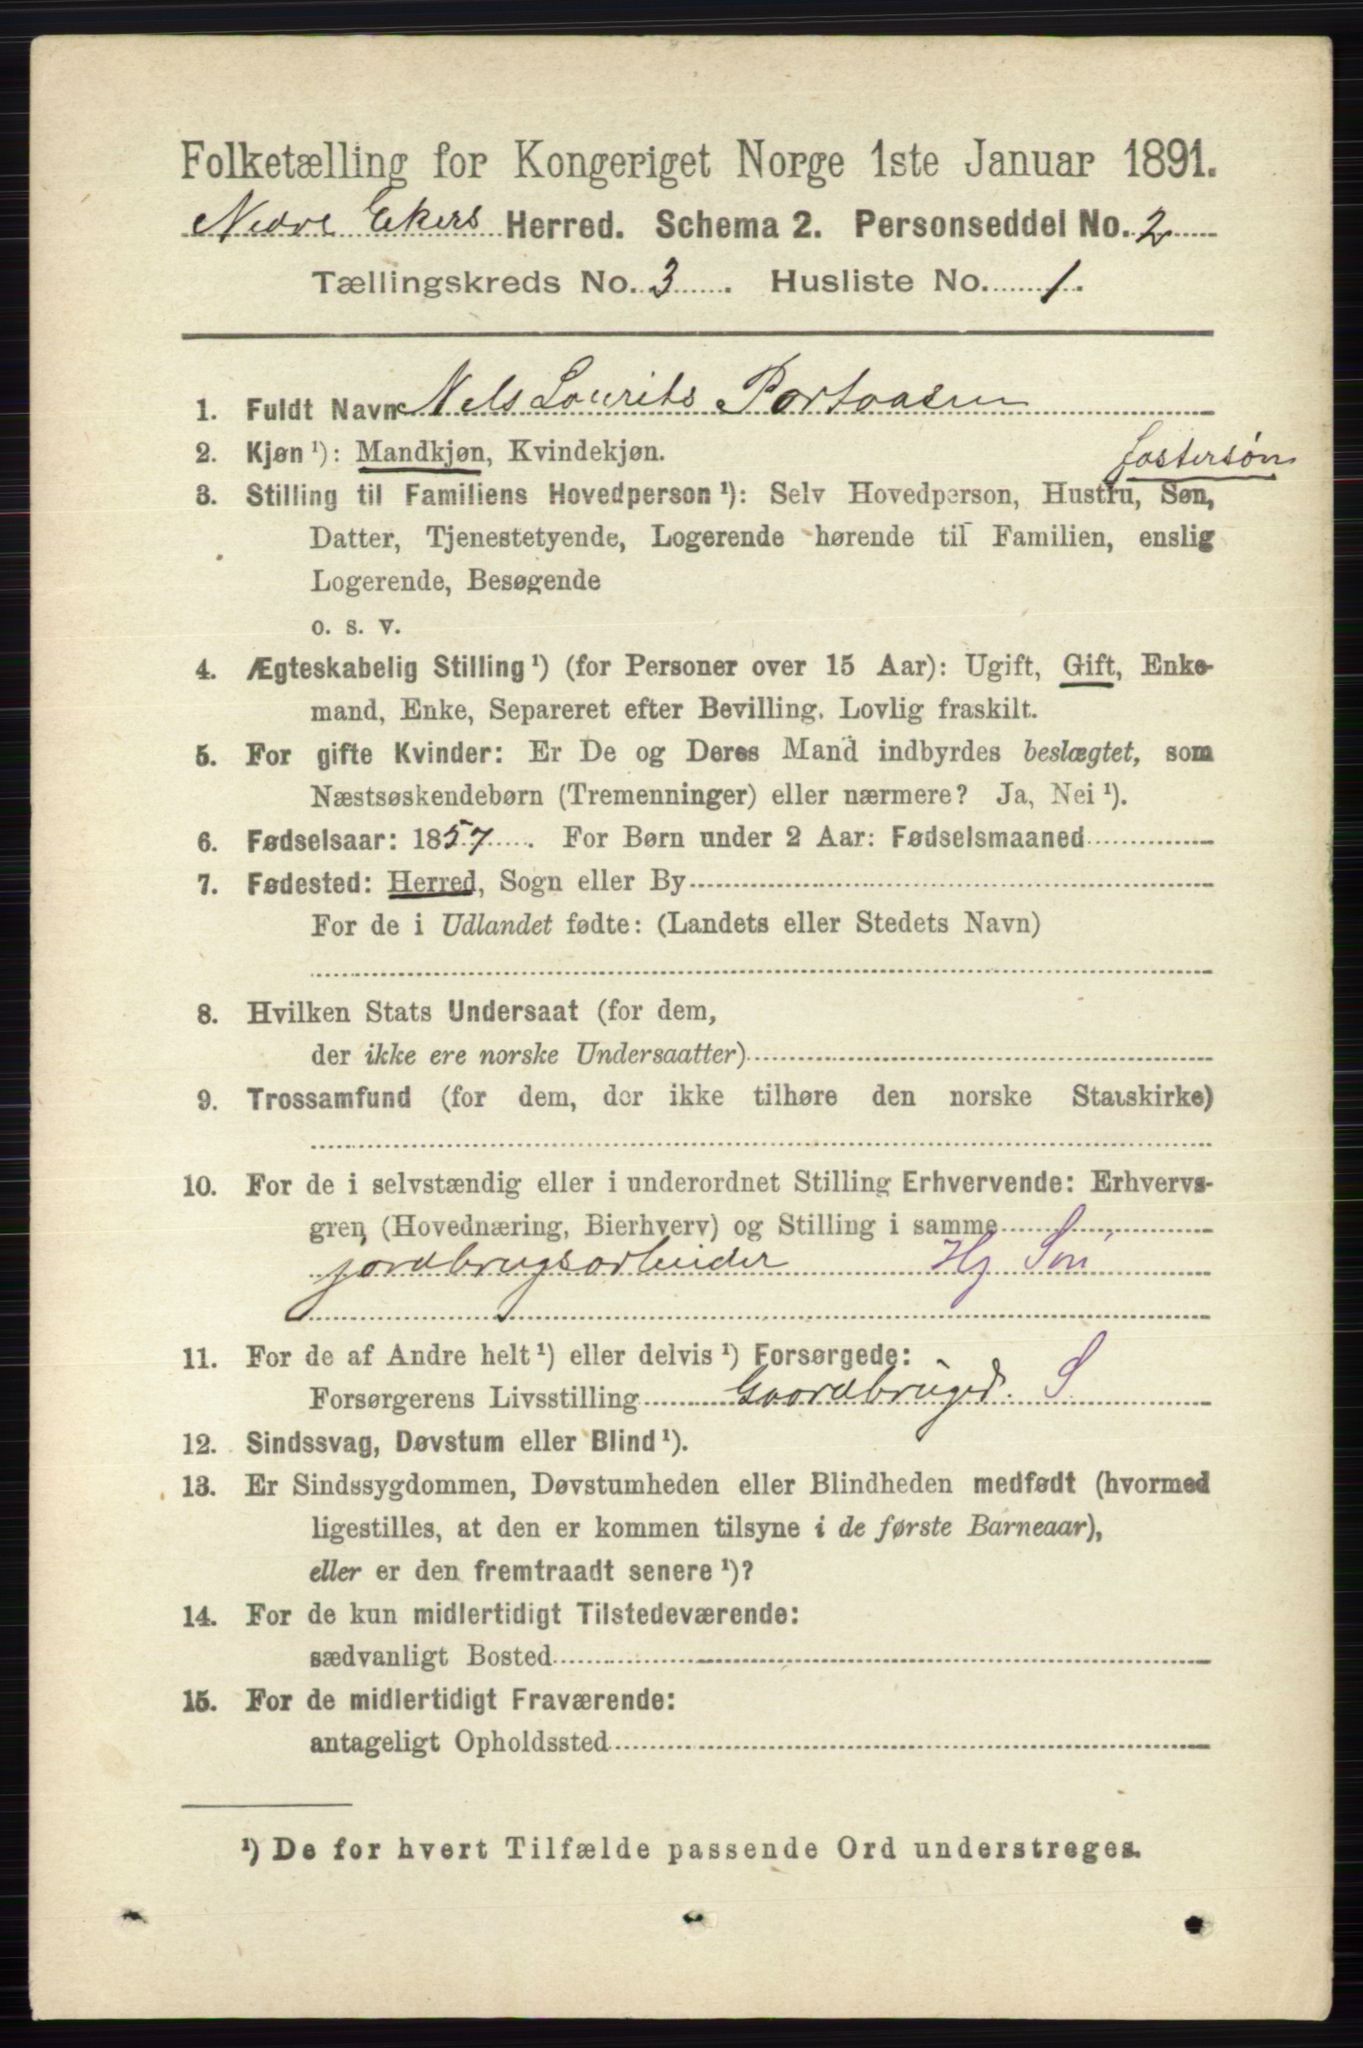 Folketælling for Kongeriget Norge 1ste Januar 1891.
Nedre Ekers Herred. Schema 2. Personseddel No. 2
Tællingskreds No. 3. Husliste No. 1.
1. Fuldt Navn Nels Lourits Portaasen
2. Kjøn ¹): Mandkjøn, Kvindekjøn.
fostersøn
3. Stilling til Familiens Hovedperson ¹): Selv Hovedperson, Hustru, Søn,
Datter, Tjenestetyende, Logerende hørende til Familien, enslig
Logerende, Besøgende
o. s. v.
4. Ægteskabelig Stilling ¹) (for Personer over 15 Aar): Ugift, Gift, Enke-
mand, Enke, Separeret efter Bevilling. Lovlig fraskilt.
5. For gifte Kvinder: Er De og Deres Mand indbyrdes beslægtet, som
Næstsøskendebørn (Tremenninger) eller nærmere? Ja, Nei ¹).
6. Fødselsaar: 1857. For Børn under 2 Aar: Fødselsmaaned
7. Fødested: Herred, Sogn eller By
For de i Udlandet fødte: (Landets eller Stedets Navn)
8. Hvilken Stats Undersaat (for dem,
der ikke ere norske Undersaatter)
9. Trossamfund (for dem, der ikke tilhøre den norske Statskirke)
10. For de i selvstændig eller i underordnet Stilling Erhvervende: Erhvervs-
gren (Hovednæring, Bierhverv) og Stilling i samme
jordbrugsarbeider Hj Søn
11. For de af Andre helt ¹) eller delvis ¹) Forsørgede:
Forsørgerens Livsstilling Gaardbruger S
12. Sindssvag, Døvstum eller Blind ¹).
13. Er Sindssygdommen, Døvstumheden eller Blindheden medfødt (hvormed
ligestilles, at den er kommen tilsyne i de første Barneaar),
eller er den fremtraadt senere ¹)?
14. For de kun midlertidigt Tilstedeværende:
sædvanligt Bosted
15. For de midlertidigt Fraværende:
antageligt Opholdssted
¹) De for hvert Tilfælde passende Ord understreges.